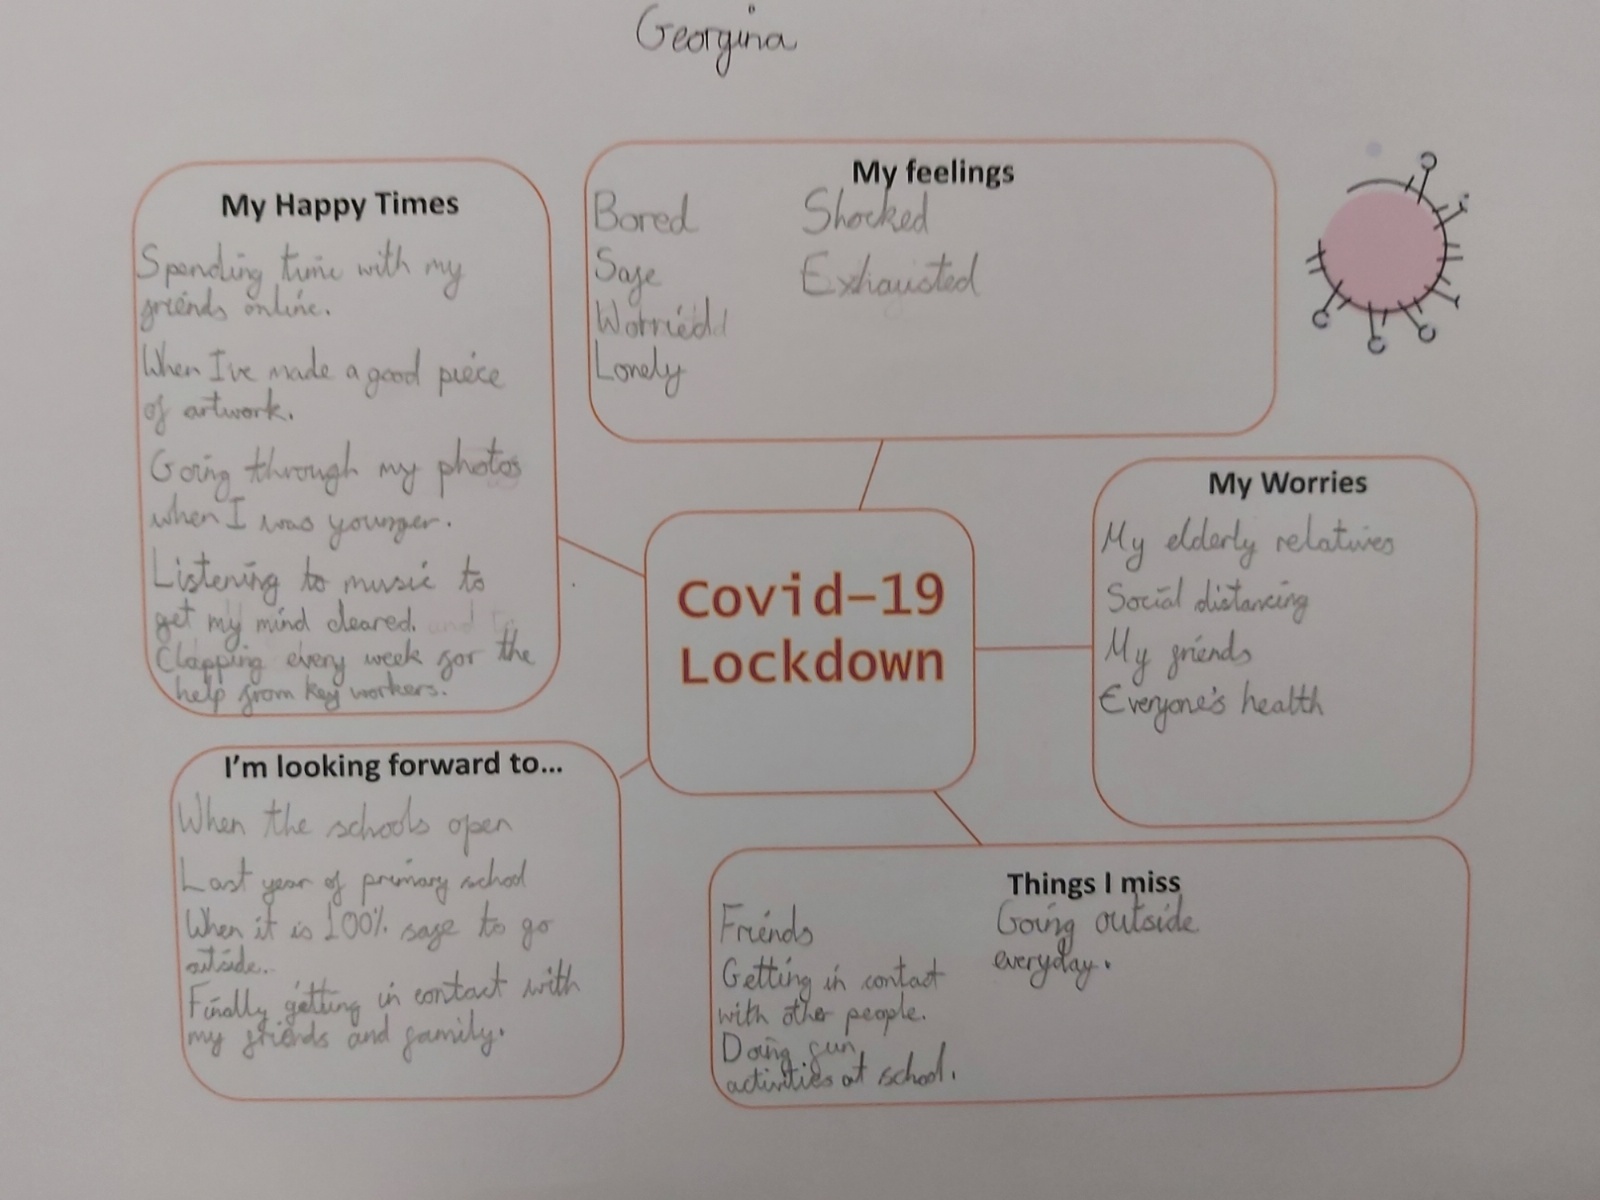 Georgina
My Happy Times
Spending time with my
friends online.
When I've made a good piece
of artwork.
Going through my photos
when I was younger.
Listening to music to
get my mind cleared.
Clapping every week for the
help from key workers.
My feelings
Bored
Safe
Worried
Lonely
Shocked
Exhausted
Covid-19
Lockdown
My Worries
My elderly relatives
Social distancing
My friends
Everyone's health
I'm looking forward to...
When the schools open
Last year of primary school
When it is 100% safe to go
outside.
Finally getting in contact with
my friends and family.
Things I miss
Friends
Getting in contact
with other people.
Doing fun
activities at school.
Going outside
everyday.